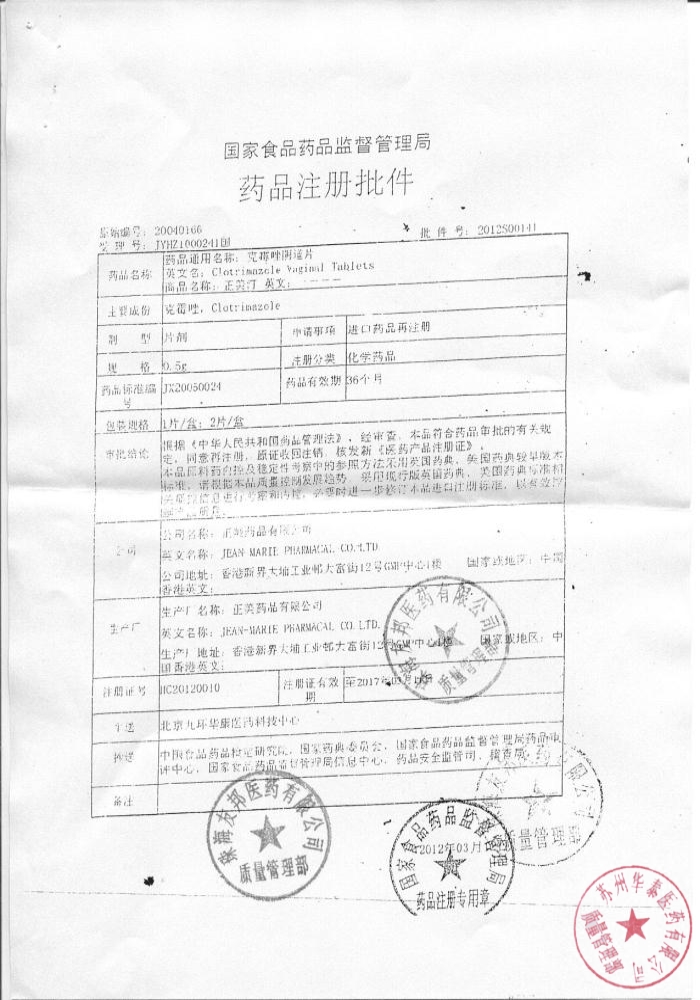 国家食品药品监督管理局
药品注册批件
原始编号: 20040166
受理号: JYHZ1000241国
批件号: 2012S00141
药品名称
药品通用名称: 克霉唑阴道片
英文名: Clotrimazole Vaginal Tablets
商品名称: 正美汀 英文:
主要成份 克霉唑, Clotrimazole
剂型 片剂 申请事项 进口药品再注册
规格 0.5g 注册分类 化学药品
药品标准编号 JX20050024 药品有效期 36个月
包装规格 1片/盒; 2片/盒
审批结论
根据《中华人民共和国药品管理法》, 经审查, 本品符合药品审批的有关规
定, 同意再注册, 原证收回注销, 核发新《医药产品注册证》。
本品原料药自控及稳定性考察中的参照方法采用英国药典、美国药典较早版本
标准, 请根据本品质量控制发展趋势, 采用现行版英国药典、美国药典标准相
必要时进一步修订本品进口注册标准, 以有效控
公司
公司名称: 正美药品有限公司
英文名称: JEAN-MARIE PHARMACAL CO.LTD
公司地址: 香港新界大埔工业邨大富街12号GMP中心1楼 国家或地区: 中国
香港英文:
生产厂
生产厂名称: 正美药品有限公司
英文名称: JEAN-MARIE PHARMACAL CO.LTD.
生产厂地址: 香港新界大埔工业邨大富街12号GMP中心1楼 国家或地区: 中
国香港英文:
注册证号 HC20120010 注册证有效期 至2017年03月
主送 北京九环华康医药科技中心
抄送
中国食品药品检定研究院, 国家药典委员会, 国家食品药品监督管理局药品审
评中心, 国家食品药品监督管理局信息中心, 药品安全监管司, 稽查局
备注
2012年03月
友邦医药有限公司
质量管理部
珠海友邦医药有限公司
质量管理部
国家食品药品监督管理局
药品注册专用章
质量管理
苏州华泰医药有限公司
质量管理部